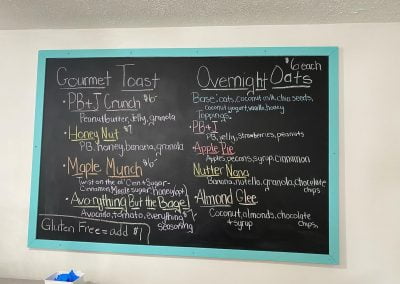 Gourmet Toast
• PB+J Crunch $6
Peanutbutter, Jelly, granola
• Honey Nut $7
PB, honey, banana, granola
• Maple Munch $6
Twist on the ol' Cinn + Sugar-
Cinnamon, Maple sugar, honey
• Avo-rything But the Bagel
Avocado, tomato, everything
seasoning
Gluten Free = add $1
Overnight Oats
$6 each
Base: oats, coconut milk, chia seeds,
coconut yogurt, vanilla, honey
Toppings:
• PB+J
PB, jelly, strawberries, peanuts
• Apple Pie
Apples, pecans, syrup, cinnamon
Nutter Nana
Banana, nutella, granola, chocolate
chips
• Almond Glee
Coconut, almonds, chocolate
+ syrup chips